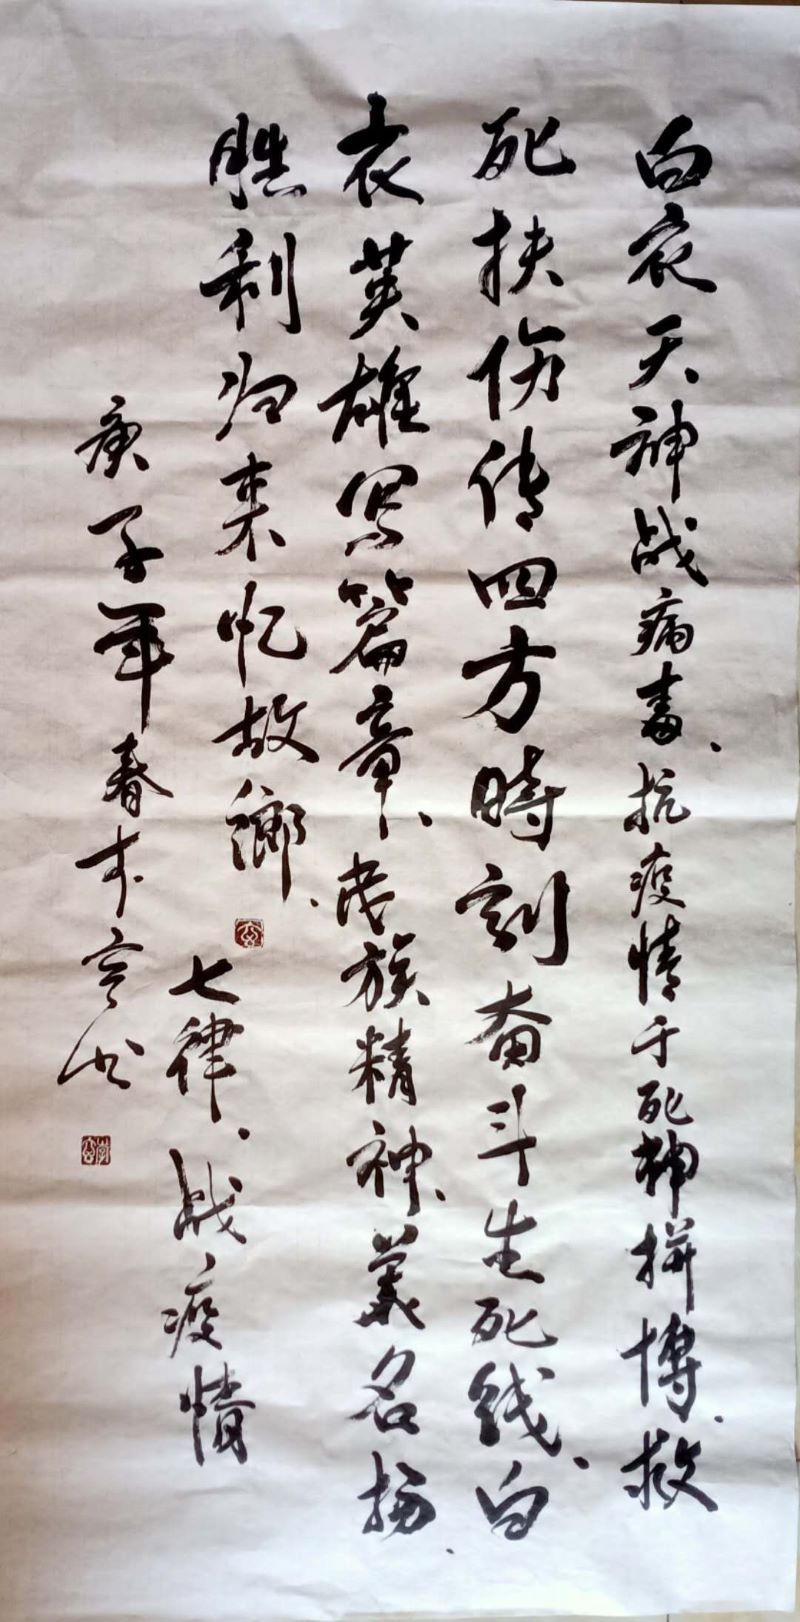 白衣天神战病毒、抗疫情于死神拼博、救
死扶伤传四方時刻奋斗生死线、白
衣英雄写篇章、民族精神、美名扬、
勝利归来忆故鄉、
七律、战疫情
庚子年春